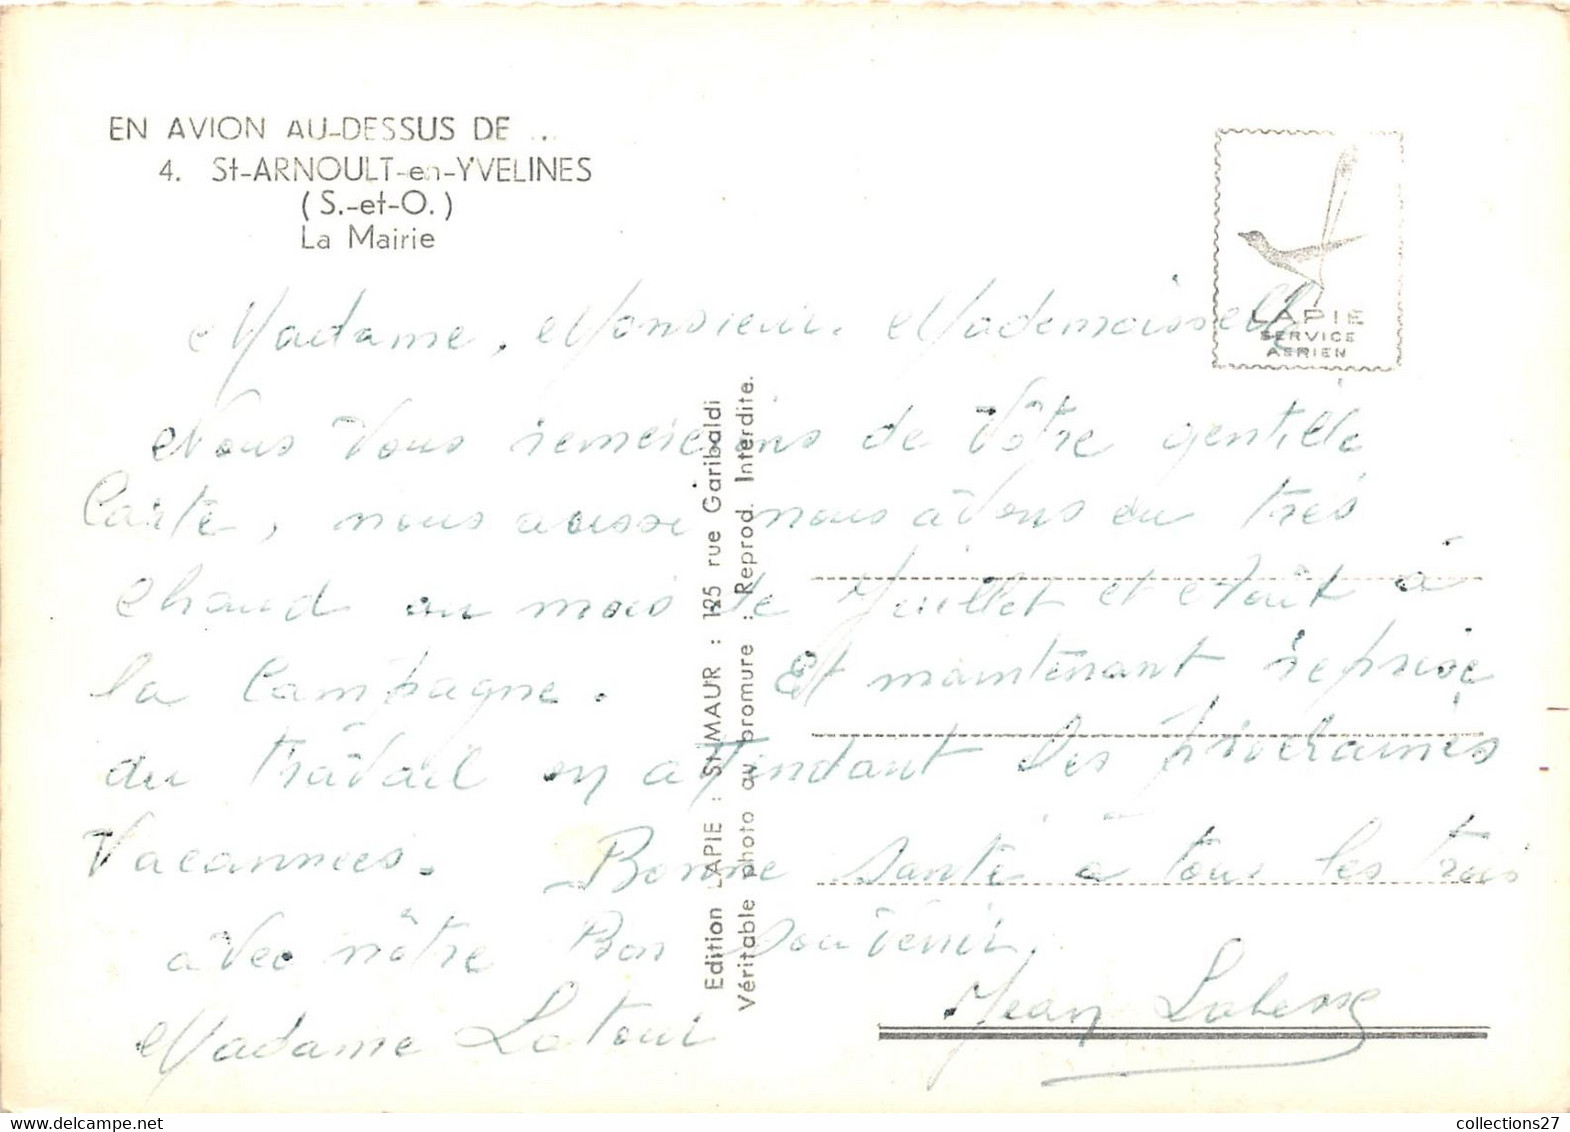 EN AVION AU-DESSUS DE ...
4. St-ARNOULT-en-YVELINES
(S.-et-O.)
La Mairie
LAPIE
SERVICE
AERIEN
Madame, Monsieur, Mademoiselle
Nous Vous remercions de Vôtre gentille
Carte, nous aussi nous avons eu très
Chaud au mois de Juillet et Août à
la Campagne. Et maintenant reprise
du travail en attendant les prochaines
Vacannces. Bonne Santé à tous les trois
avec nôtre Bon Souvenir.
Madame Latour Jean
Edition LAPIE : St-MAUR : 125 rue Garibaldi
Véritable photo au bromure : Reprod. Interdite.
collections27